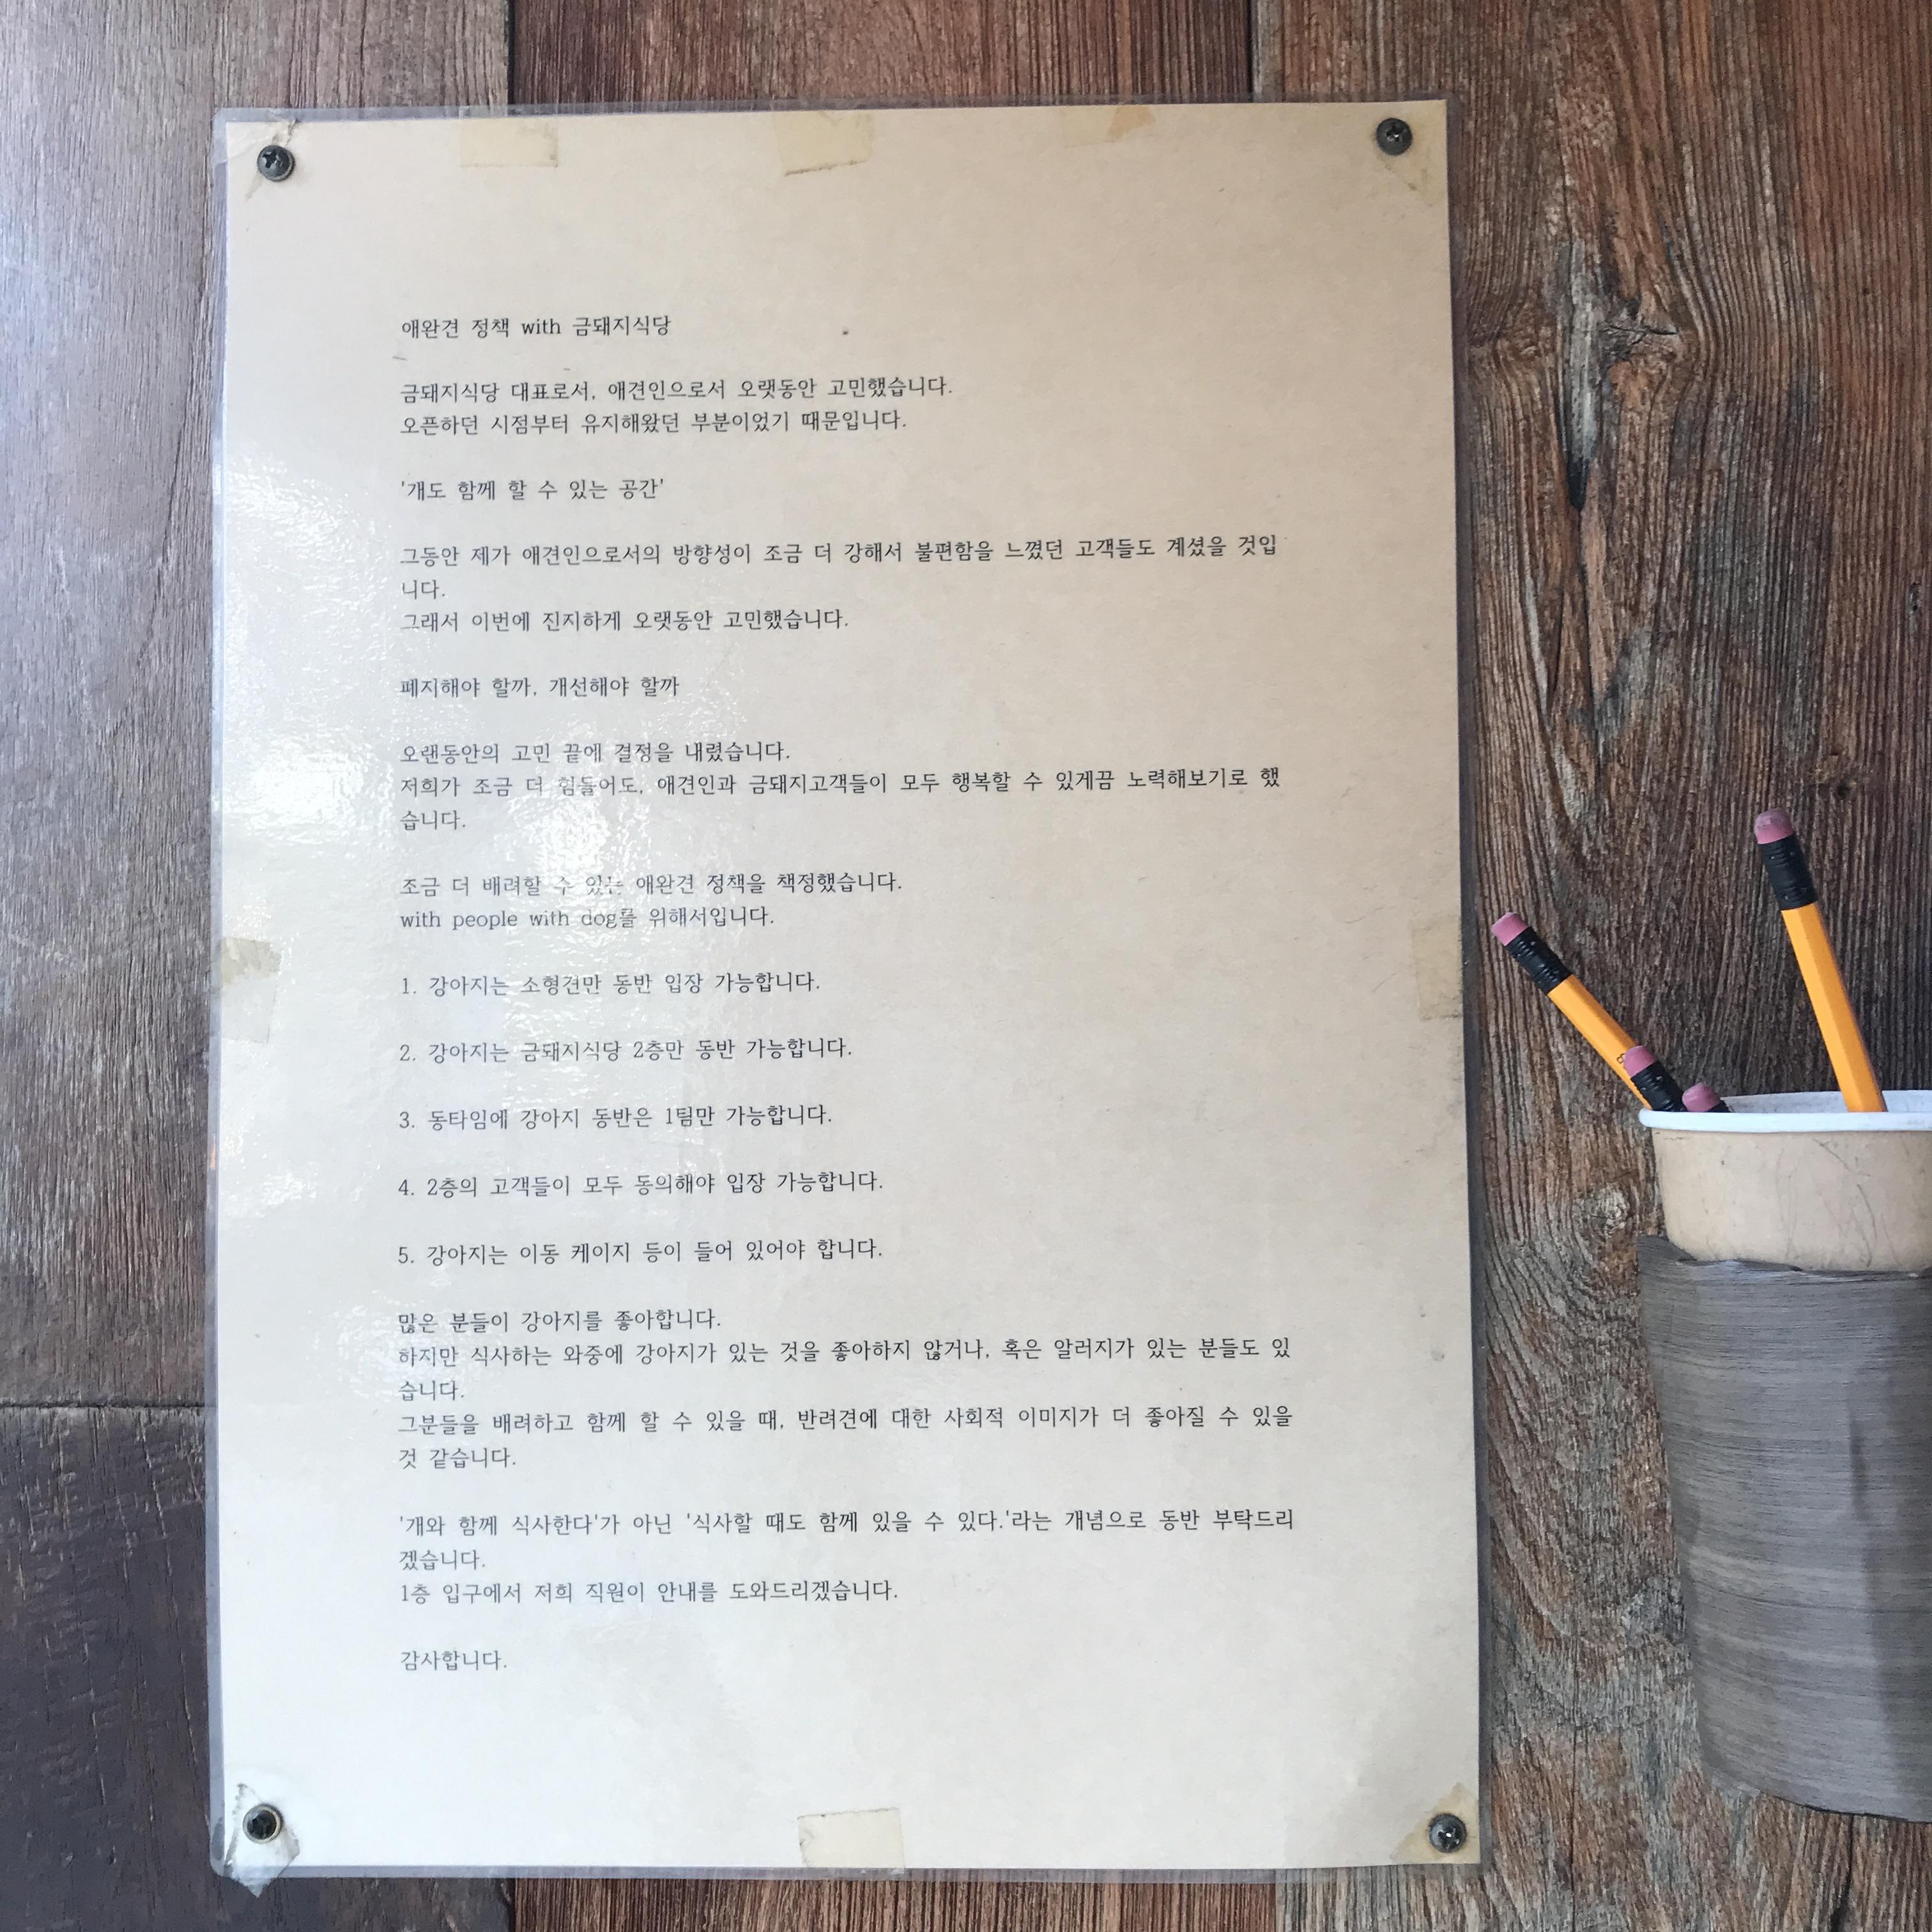 애완견 정책 with 금돼지식당
금돼지식당 대표로서, 애견인으로서 오랫동안 고민했습니다.
오픈하던 시점부터 유지해왔던 부분이었기 때문입니다.
'개도 함께 할 수 있는 공간'
그동안 제가 애견인으로서의 방향성이 조금 더 강해서 불편함을 느꼈던 고객들도 계셨을 것입
니다.
그래서 이번에 진지하게 오랫동안 고민했습니다.
폐지해야 할까, 개선해야 할까
오랜동안의 고민 끝에 결정을 내렸습니다.
저희가 조금 더 힘들어도, 애견인과 금돼지고객들이 모두 행복할 수 있게끔 노력해보기로 했
습니다.
조금 더 배려할 수 있는 애완견 정책을 책정했습니다.
with people with dog를 위해서입니다.
1. 강아지는 소형견만 동반 입장 가능합니다.
2. 강아지는 금돼지식당 2층만 동반 가능합니다.
3. 동타임에 강아지 동반은 1팀만 가능합니다.
4. 2층의 고객들이 모두 동의해야 입장 가능합니다.
5. 강아지는 이동 케이지 등이 들어 있어야 합니다.
많은 분들이 강아지를 좋아합니다.
하지만 식사하는 와중에 강아지가 있는 것을 좋아하지 않거나, 혹은 알러지가 있는 분들도 있
습니다.
그분들을 배려하고 함께 할 수 있을 때, 반려견에 대한 사회적 이미지가 더 좋아질 수 있을
것 같습니다.
'개와 함께 식사한다'가 아닌 '식사할 때도 함께 있을 수 있다.'라는 개념으로 동반 부탁드리
겠습니다.
1층 입구에서 저희 직원이 안내를 도와드리겠습니다.
감사합니다.